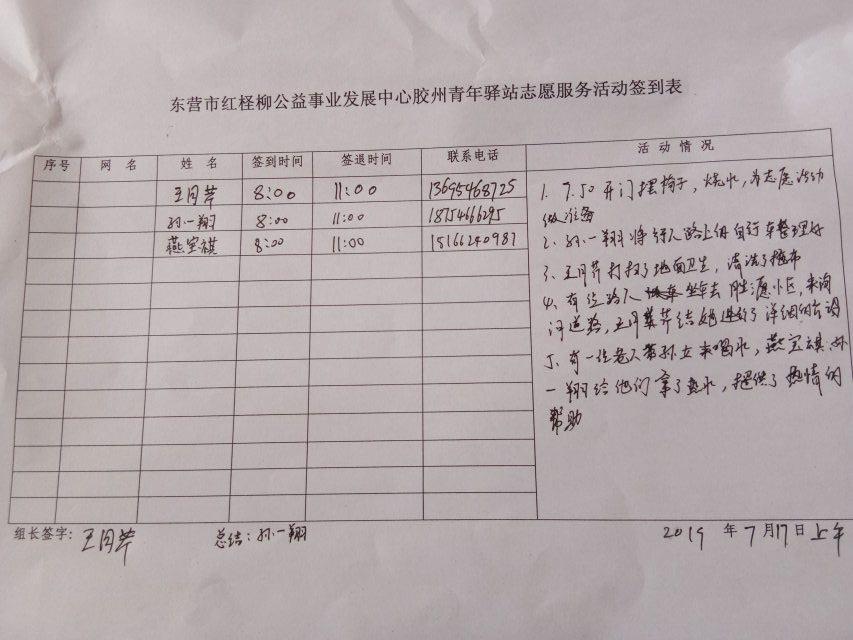 东营市红柽柳公益事业发展中心胶州青年驿站志愿服务活动签到表
序号 网名 姓名 签到时间 签退时间 联系电话 活动情况
王月芹 8:00 11:00 13695468725
孙一翔 8:00 11:00 1875466295
燕宝祺 8:00 11:00 15166240987
1、7.50开门摆椅子,烧水,为志愿活动
做准备
2、孙一翔将行人路上的自行车整理好
3、王月芹打扫了地面卫生,清洗了拖布
4、有位路人坐车去胜源小区,来询
问道路,王月芹给她进行了详细的告调
5、有一位老人带孙女来喝水,燕宝祺、孙
一翔给他们拿了热水,提供了热情的
帮助
组长签字:王月芹 总结:孙一翔 2019年7月17日上午